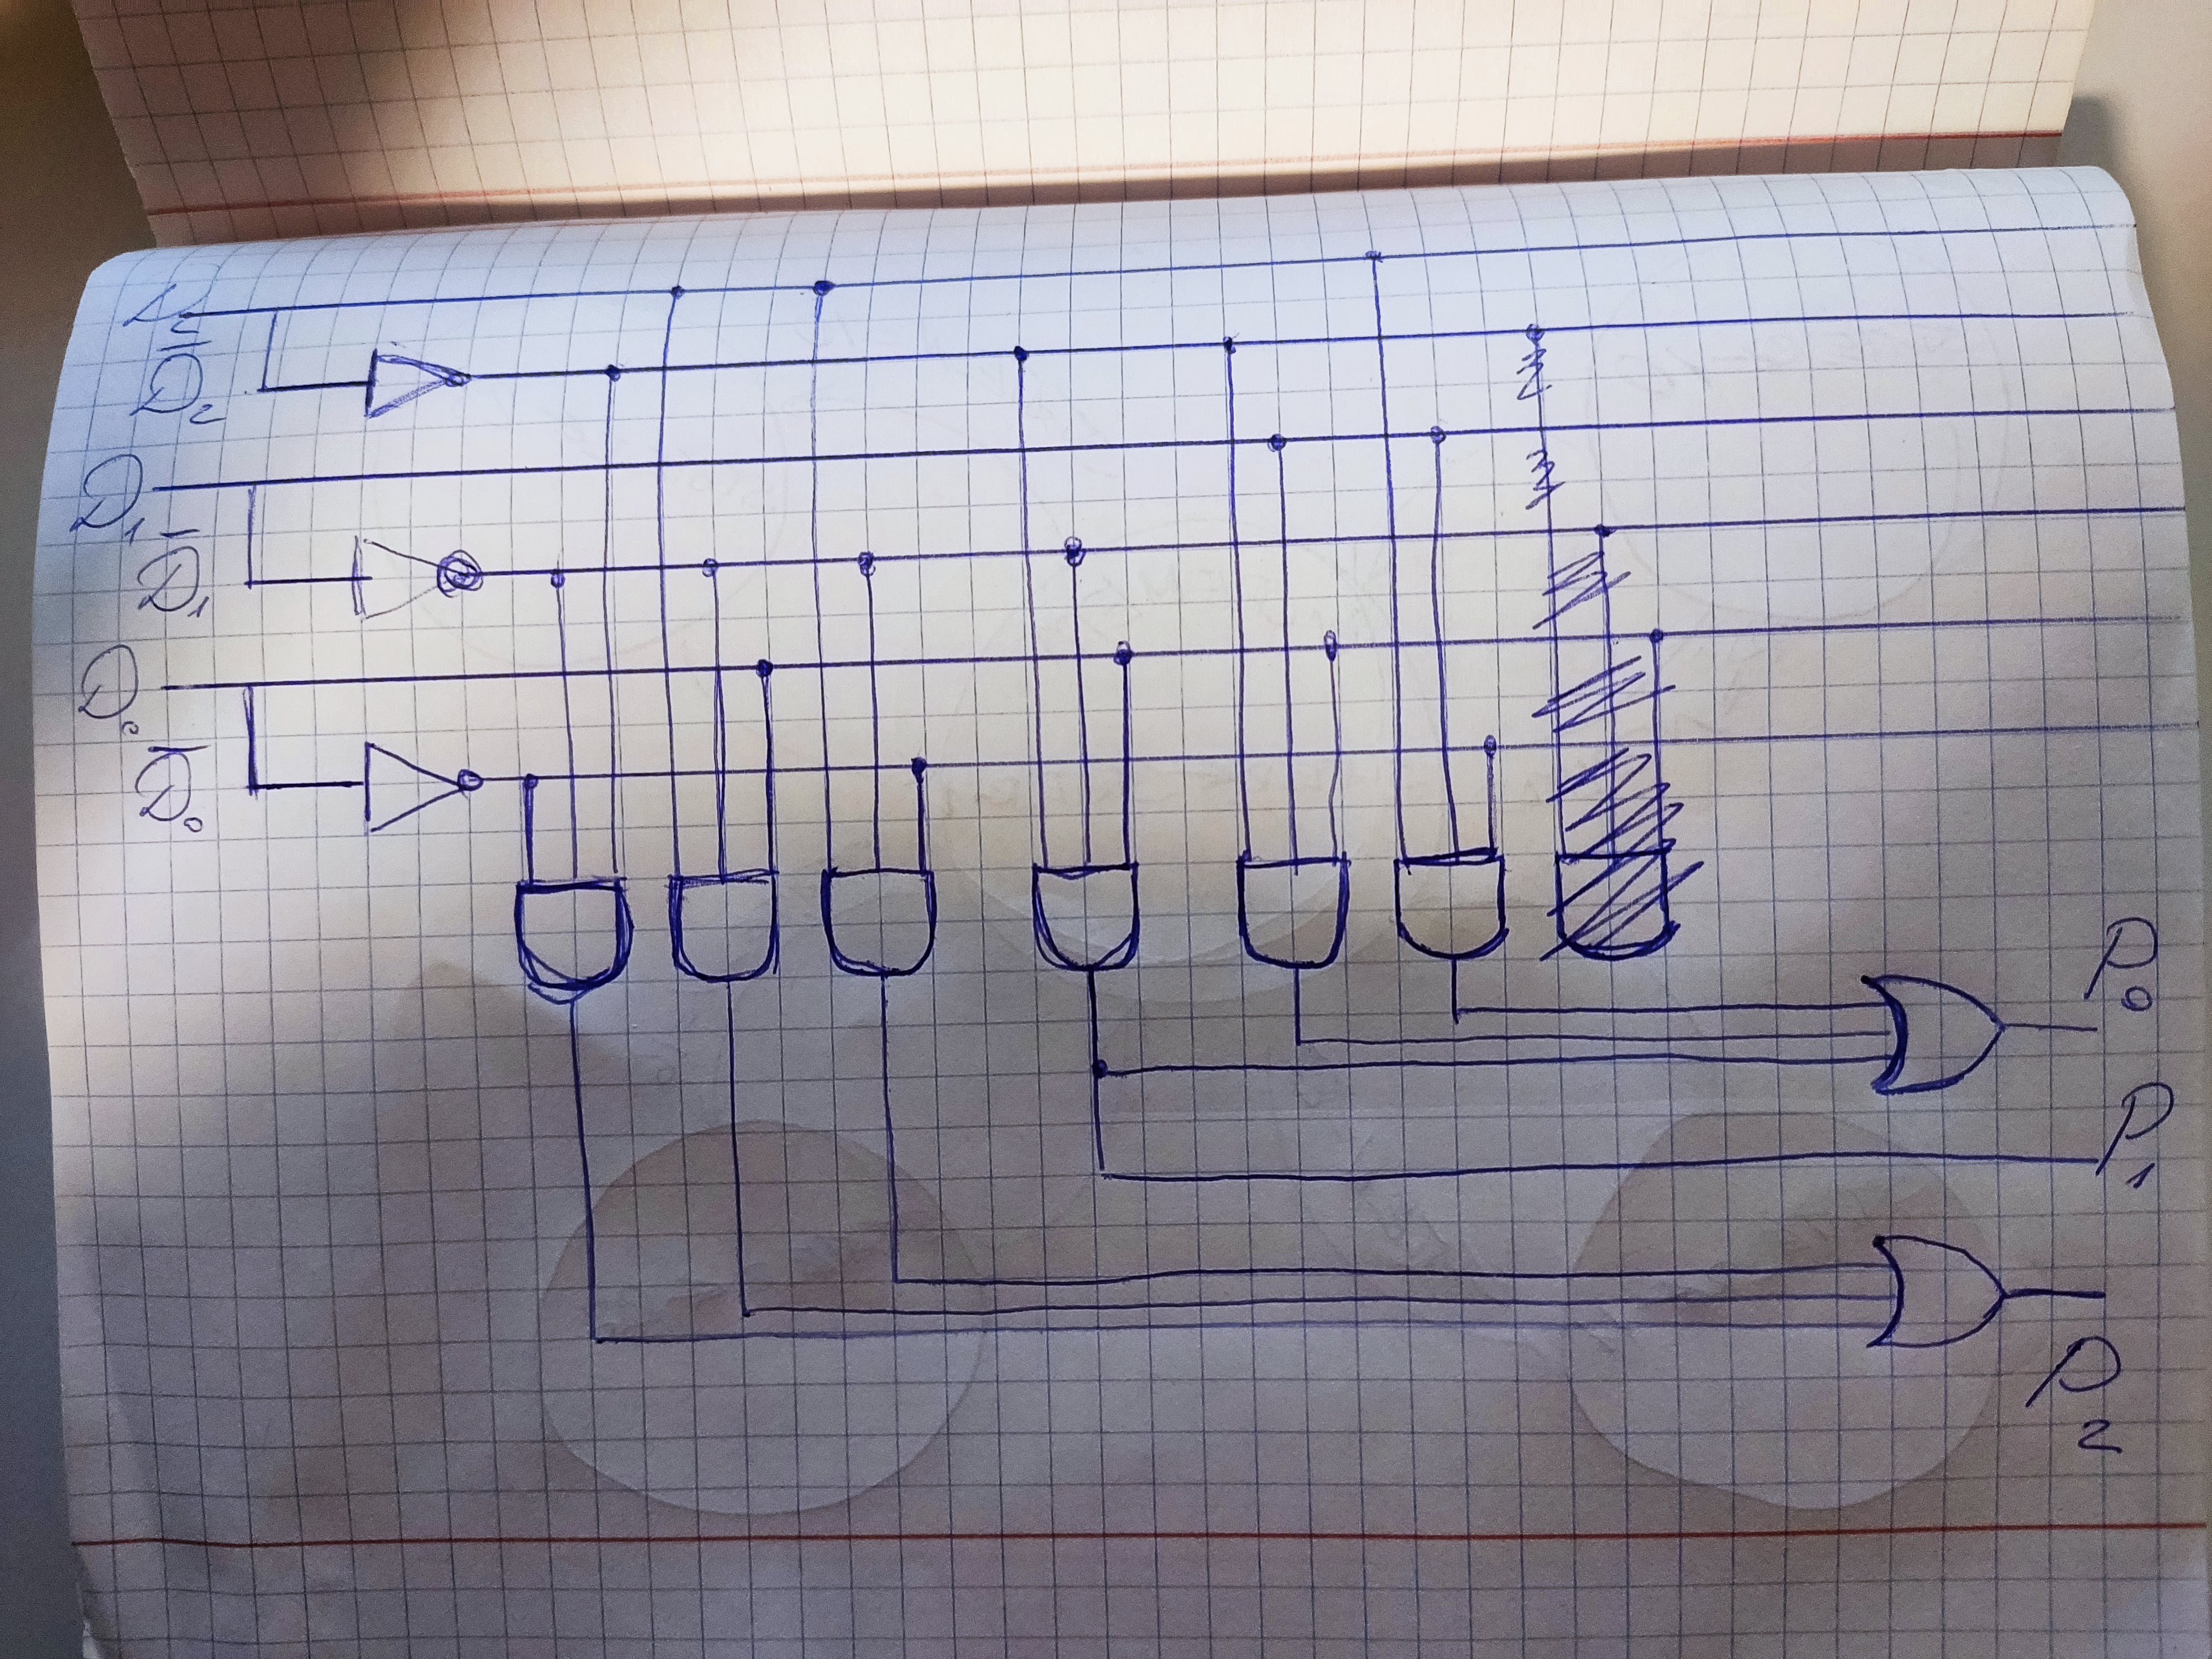 D̅₂
D₁
D̅₁
D₀
D̅₀
P₀
P₁
P₂